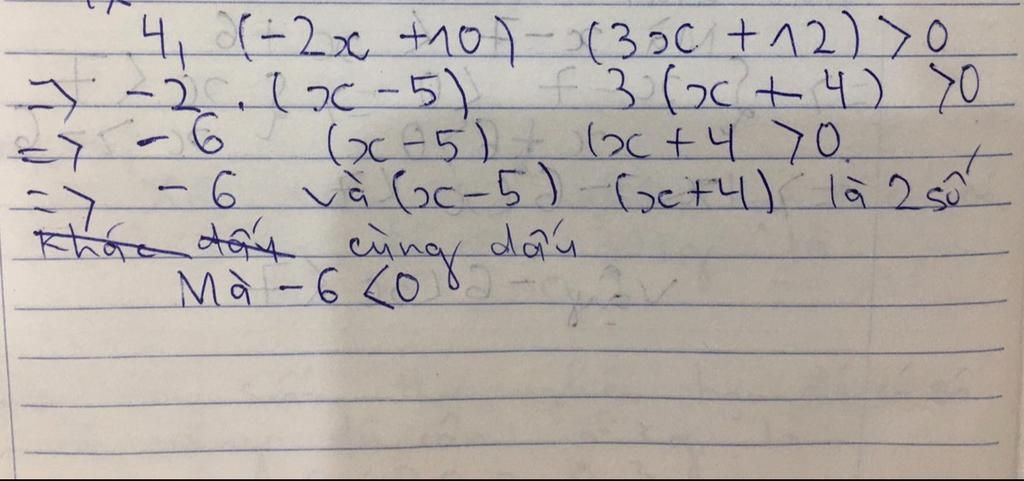 4, (-2x +10) (3x + 12) > 0
=> -2 . (x - 5) 3 (x + 4) > 0
=> - 6 (x - 5) (x + 4 > 0.
=> - 6 và (x - 5) (x+4) là 2 số
khác dấu cùng dấu
Mà - 6 < 0